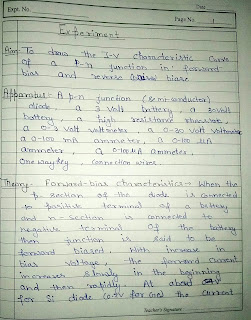 Expt. No.
Date
Page No. 1
Experiment
Aim:- To draw the I-V characteristic Curve
of a p-n junction in forward
bias and reverse bias
Apparatus:- A p-n junction (Semi-conductor)
diode, a 3 volt battery, a 30volt
battery, a high resistance rheostate,
a 0-3 volt voltmeter, a 0-30 volt Voltmeter
a 0-100 mA ammeter, a 0-100 µA
ammeter, a 0-100µA ammeter,
One way key, Connection wires.
Theory:- Forward-bias characteristics → When the
p- section of the diode is connected
to positive terminal of a battery
and n-section is connected to
negative terminal of the battery
then junction is said to be
forward biased. With increase in
bias voltage, the forward current
increases slowly in the beginning
and then rapidly. At about
for Si diode (0.2V for Ge) the current
Teacher's Signature